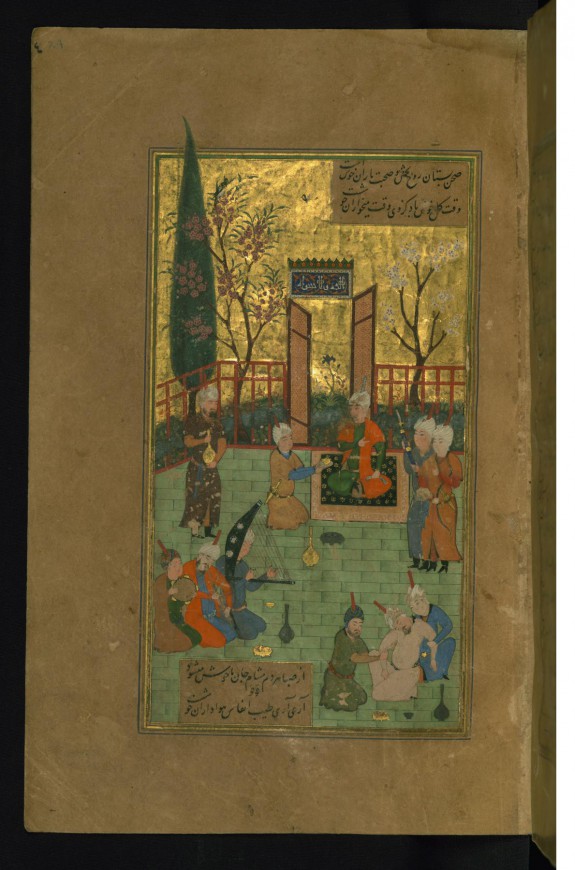 صحن بستان بخش و صحبت یاران خوشست
وقت گل خوش باد کزوی وقت میخواران خوشست
از صبا هر دم مشام جان ما خوش میشود
آری آری طیب انفاس هواداران خوشست